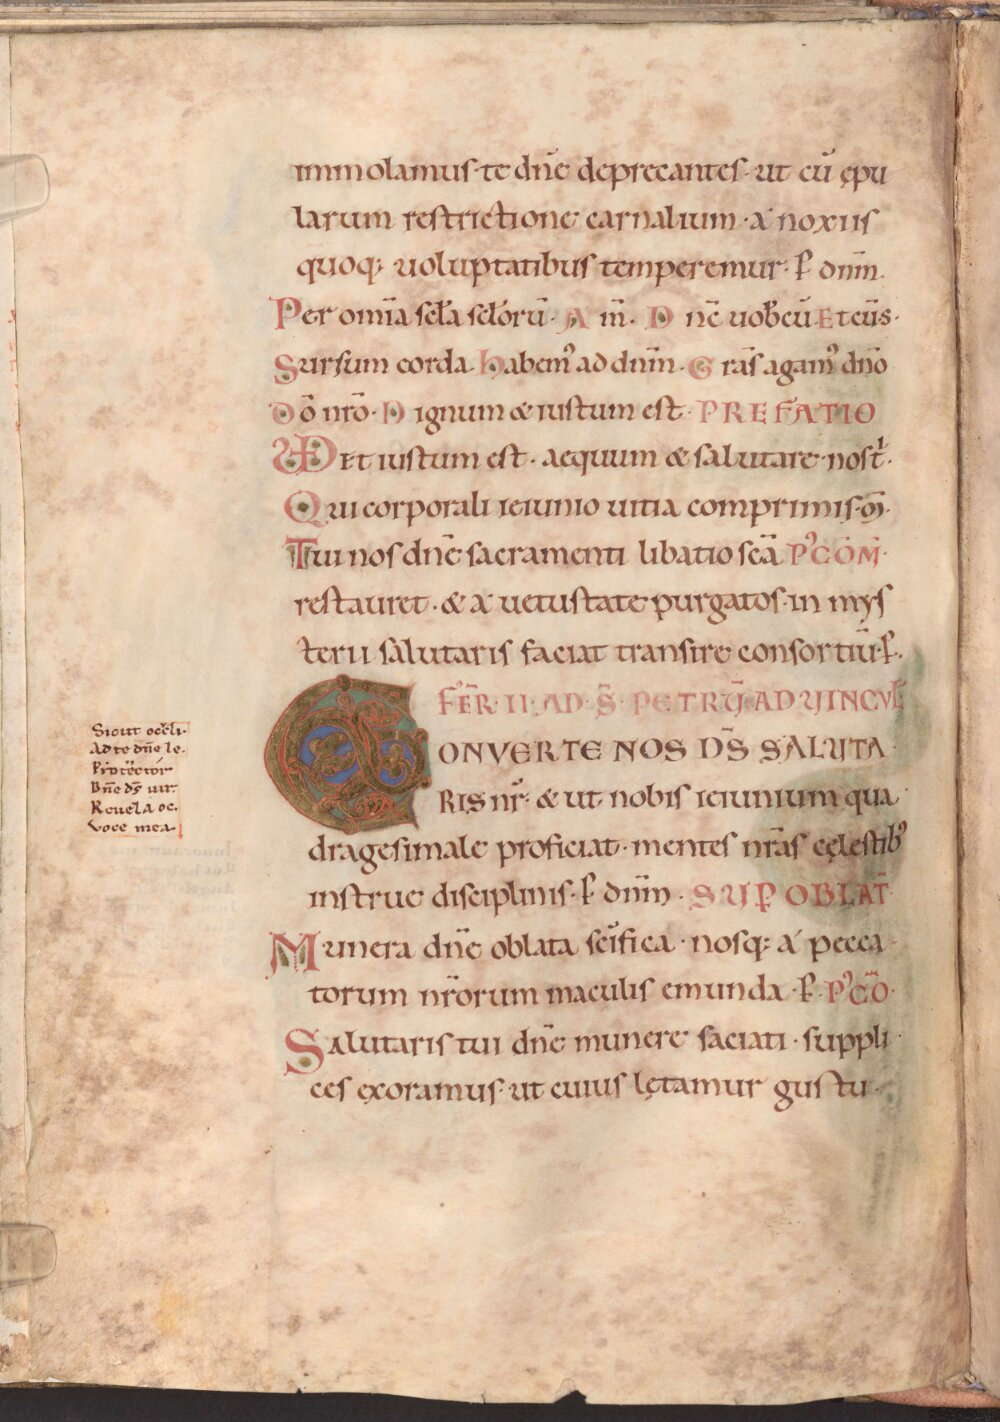 immolamus· te dn̄e deprecantes· ut cū ępu
larum restrictione carnalium· a noxiis
quoq; uoluptatibus temperemur· ꝑ dnm̄.
Per om̄ia scl̄a scl̄orū· A m̄. D nē uob̄cū Et cū s·
Sursum corda. habem᷒ ad dnm̄. G rās agam᷒ dn̄o
Dō nr̄o· D ignum & iustum est· PREFATIO
VD Et iustum est· aequum & salutare· nost̄·
Qui corporali ieiunio uitia comprimis·
Tui nos dn̄e sacramenti libatio scā P᷒CŌM̄·
restauret· & a uetustate purgatos· in mys
terii salutaris faciat transire consortiū· ꝑ.
FĒR· II· AD· S̄· PETRŪ AD VINCVL̄
CONVERTE NOS DS̄ SALUTA
RIS nr̄· & ut nobis ieiunium qua
dragesimale proficiat· mentes nr̄as cęlestib᷒
instrue disciplinis· ꝑ dnm̄· SUꝐ OBLAT̄
Munera dn̄e oblata sc̄ifica· nosq; a pecca
torum nr̄orum maculis emunda· ꝑ· P᷒CŌ·
Salutaris tui dn̄e munere saciati· suppli
ces exoramus· ut cuius lętamur gustu·
Sicut oc̄li·
Ad te dn̄e le·
Protector
Dn̄e ds̄ uir
Reuela oc·
Voce mea·